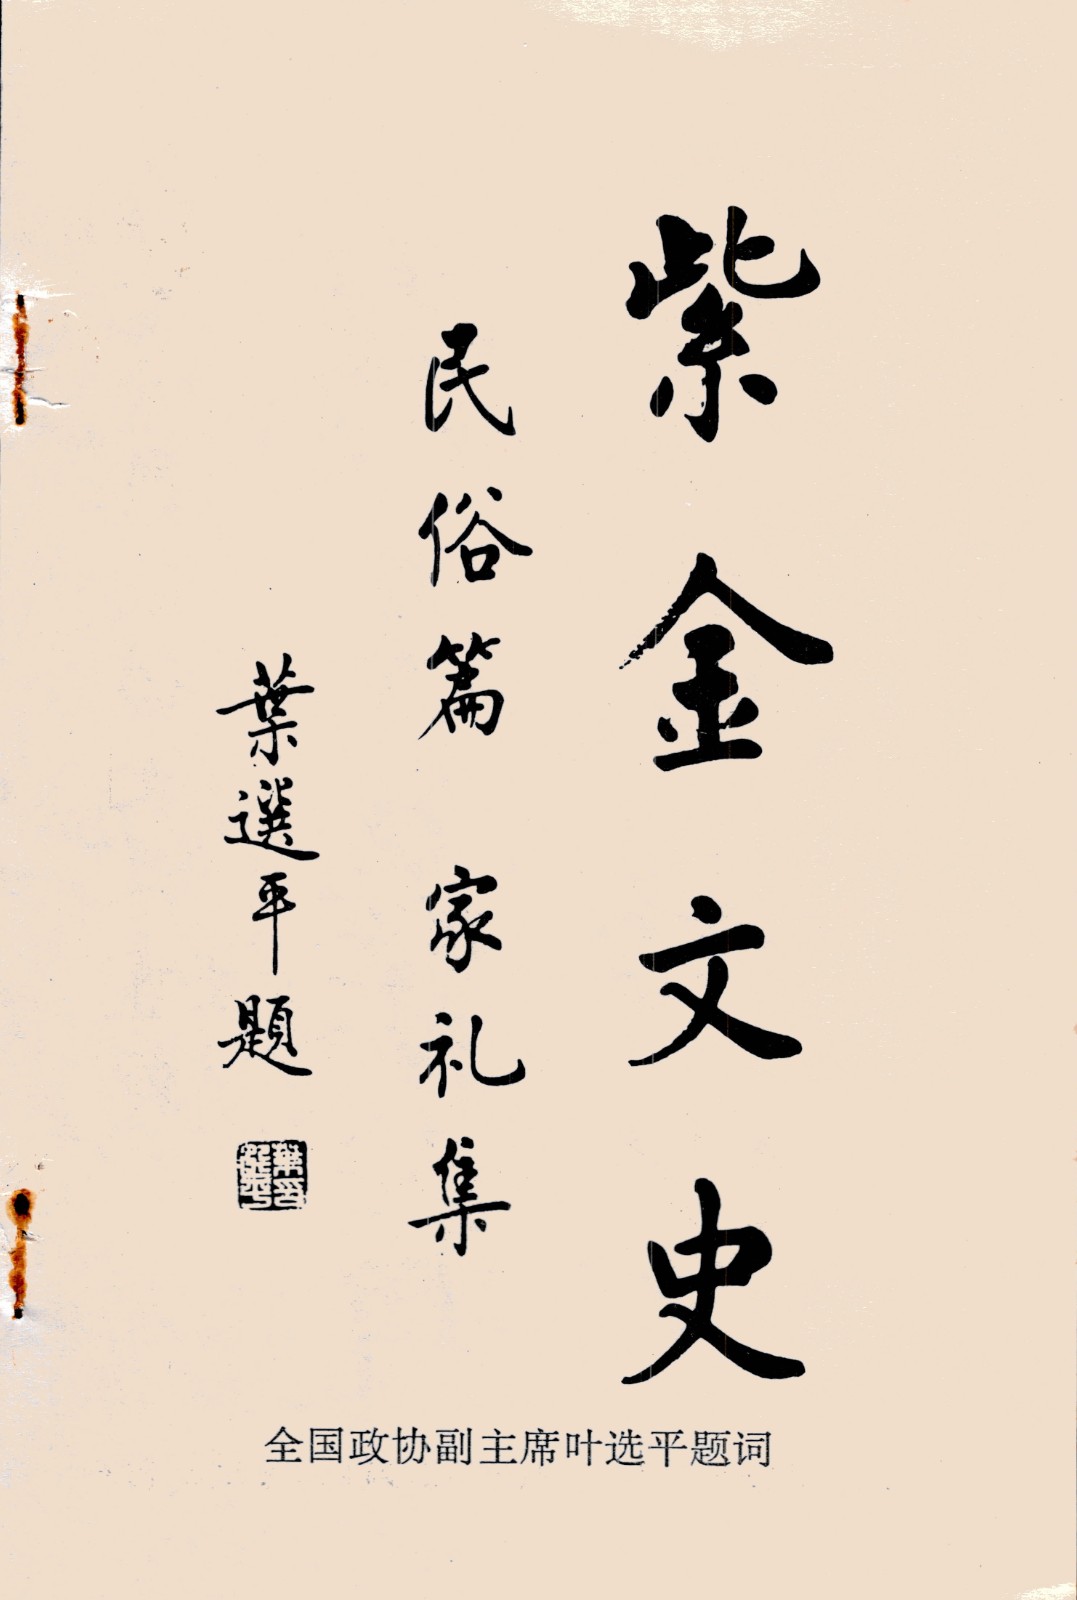 紫金文史
民俗篇 家礼集
葉選平題
全国政协副主席叶选平题词